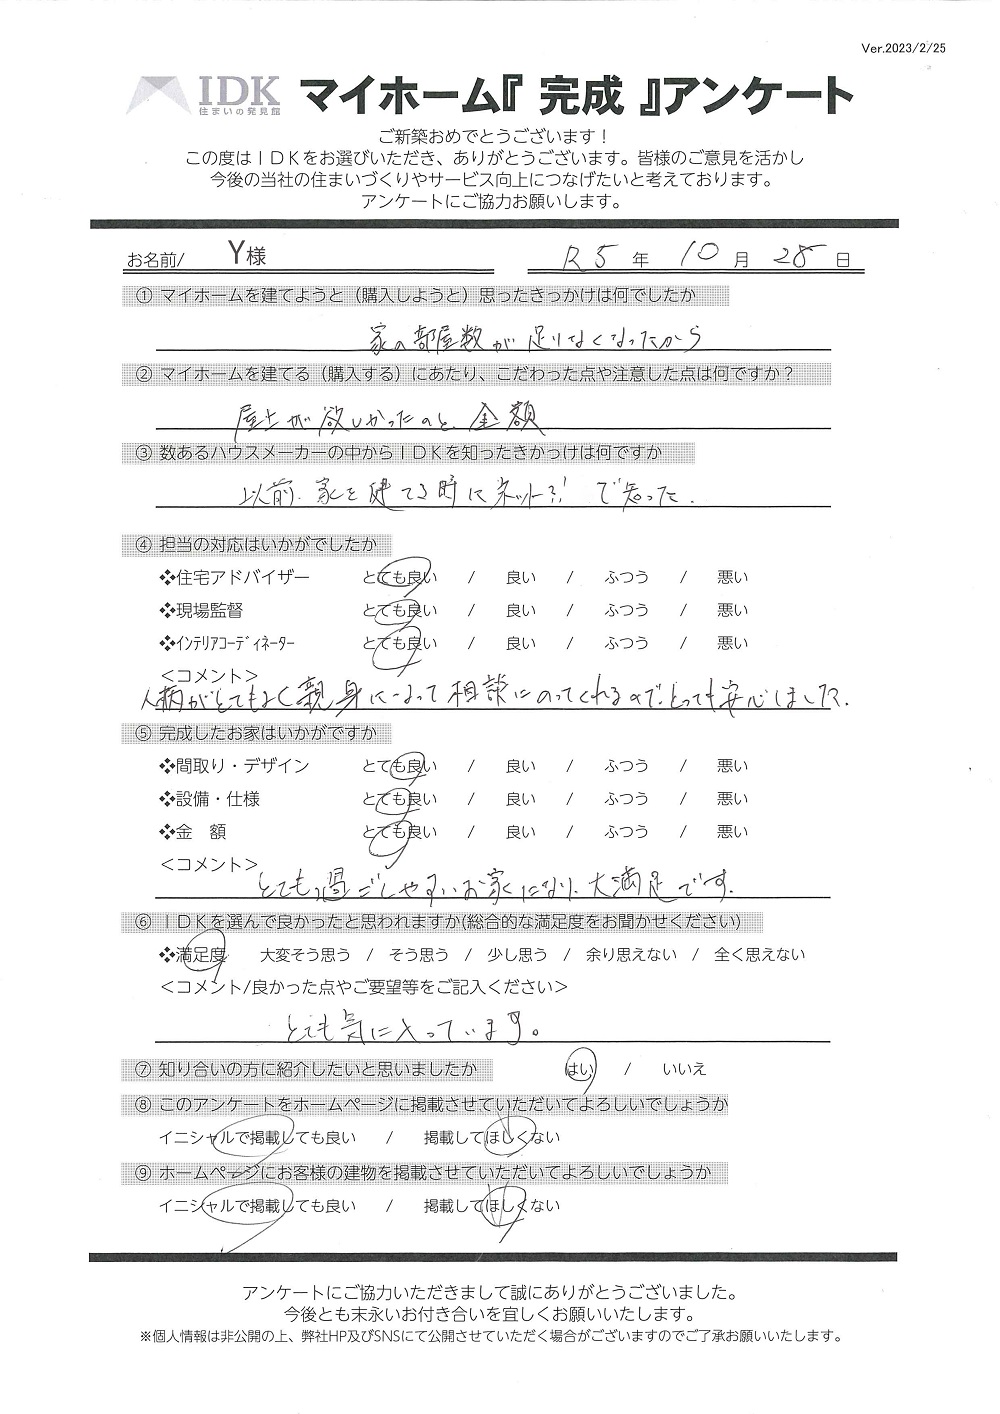 Ver.2023/2/25
IDK 住まいの発見館
マイホーム『 完成 』アンケート
ご新築おめでとうございます！
この度はＩＤＫをお選びいただき、ありがとうございます。皆様のご意見を活かし
今後の当社の住まいづくりやサービス向上につなげたいと考えております。
アンケートにご協力お願いします。
お名前/ Y様 R5年 10月 28日
① マイホームを建てようと（購入しようと）思ったきっかけは何でしたか
家の部屋数が足りなくなったから
② マイホームを建てる（購入する）にあたり、こだわった点や注意した点は何ですか？
屋上が欲しかったのと、金額
③ 数あるハウスメーカーの中からＩＤＫを知ったきかっけは何ですか
以前、家を建てる時にネット?で知った.
④ 担当の対応はいかがでしたか
❖住宅アドバイザー とても良い / 良い / ふつう / 悪い
❖現場監督 とても良い / 良い / ふつう / 悪い
❖ｲﾝﾃﾘｱｺｰﾃﾞｨﾈｰﾀｰ とても良い / 良い / ふつう / 悪い
＜コメント＞
人柄がとてもよく親身になって相談にのってくれるので、とっても安心しました.
⑤ 完成したお家はいかがですか
❖間取り・デザイン とても良い / 良い / ふつう / 悪い
❖設備・仕様 とても良い / 良い / ふつう / 悪い
❖金　額 とても良い / 良い / ふつう / 悪い
＜コメント＞
とても過ごしやすいお家になり、大満足です.
⑥ ＩＤＫを選んで良かったと思われますか(総合的な満足度をお聞かせください)
❖満足度 大変そう思う / そう思う / 少し思う / 余り思えない / 全く思えない
＜コメント/良かった点やご要望等をご記入ください＞
とても気に入っています。
⑦ 知り合いの方に紹介したいと思いましたか はい / いいえ
⑧ このアンケートをホームページに掲載させていただいてよろしいでしょうか
イニシャルで掲載しても良い / 掲載してほしくない
⑨ ホームページにお客様の建物を掲載させていただいてよろしいでしょうか
イニシャルで掲載しても良い / 掲載してほしくない
アンケートにご協力いただきまして誠にありがとうございました。
今後とも末永いお付き合いを宜しくお願いいたします。
※個人情報は非公開の上、弊社HP及びSNSにて公開させていただく場合がございますのでご了承お願いいたします。